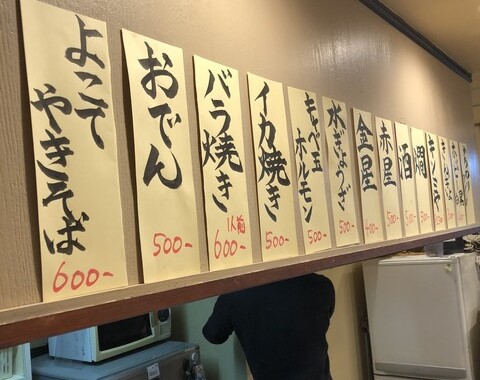 よこて
やきそば
600-
おでん
500-
バラ焼き
1人前
600-
イカ焼き
500-
キャベ玉
ホルモン
500-
水ぎょうざ
500-
金星
400-
赤星
500
酒
500
燗
500